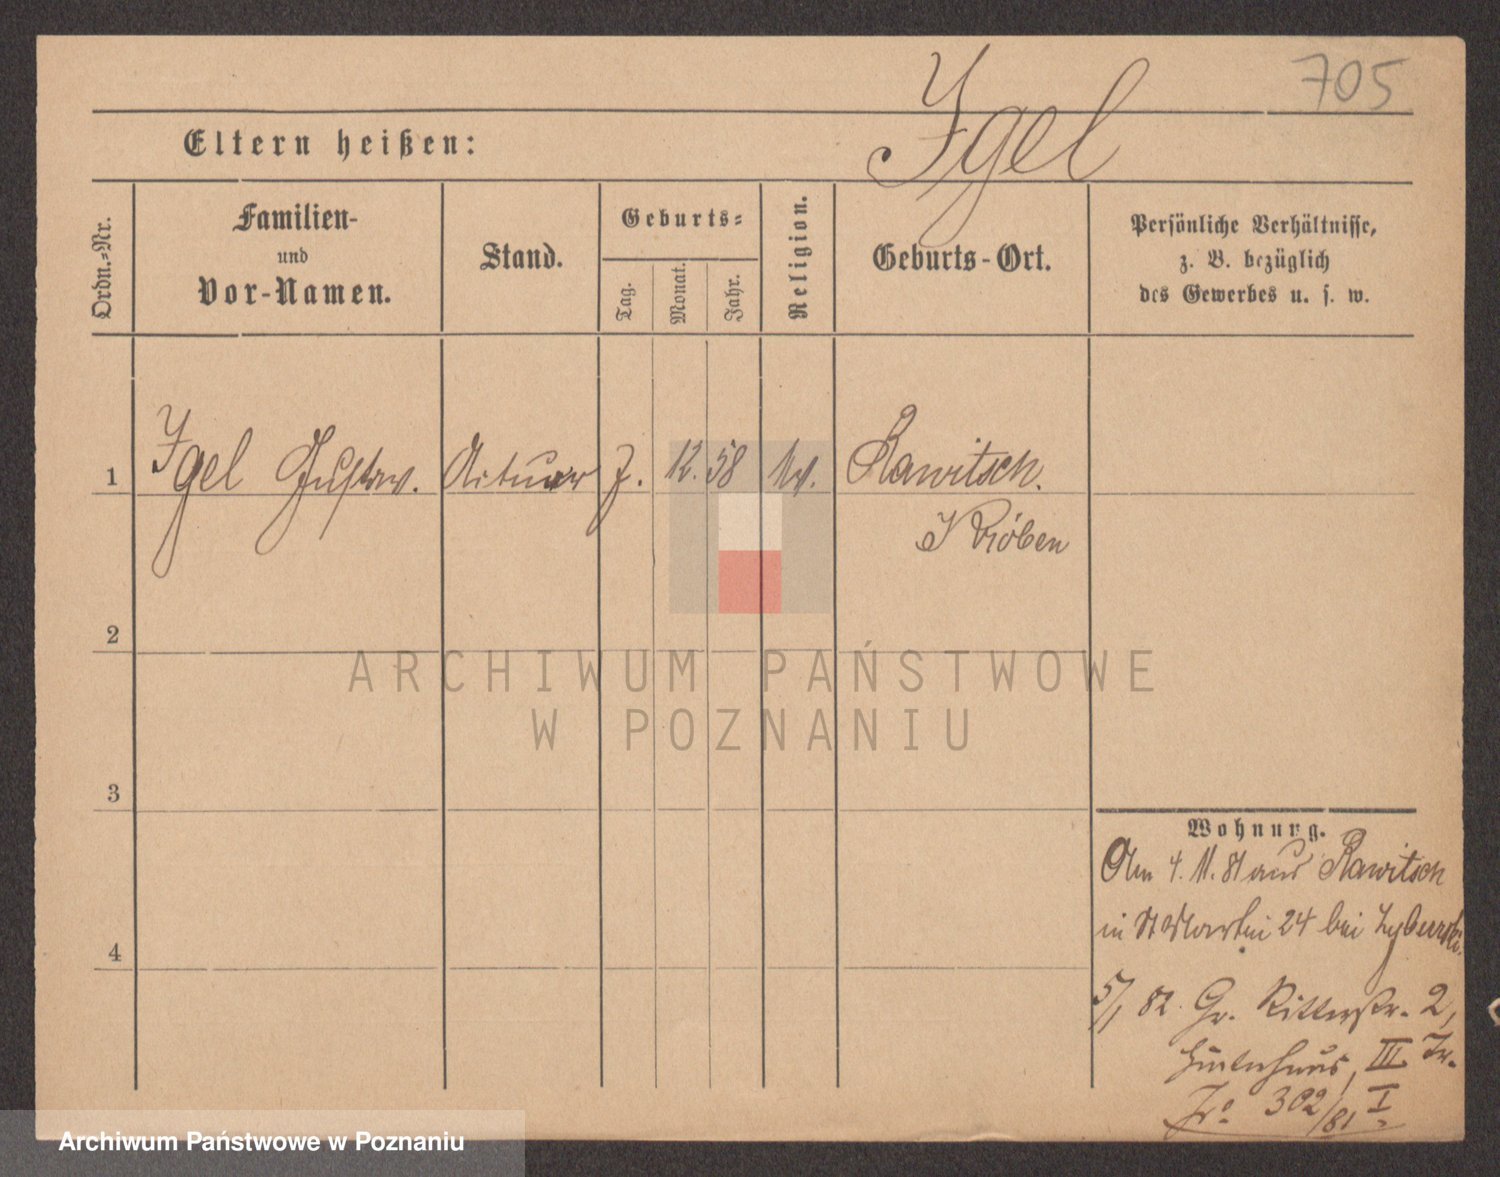 705
Igel
Eltern heißen:
Ordn.-Nr.
Familien-
und
Vor-Namen.
Stand.
Geburts-
Tag.
Monat.
Jahr.
Religion.
Geburts-Ort.
Persönliche Verhältnisse,
z. B. bezüglich
des Gewerbes u. s. w.
1
Igel Gustav.
Actuar
7.
12.
58
Rawitsch.
Kröben
2
ARCHIWUM PAŃSTWOWE
W POZNANIU
3
Wohnung.
Am 4. 11. 81 aus Rawitsch
in St Martin 24 bei
4
5/1 82. Gr. Ritterstr. 2,
Hinterhaus, III Tr.
302/81 I
Archiwum Państwowe w Poznaniu